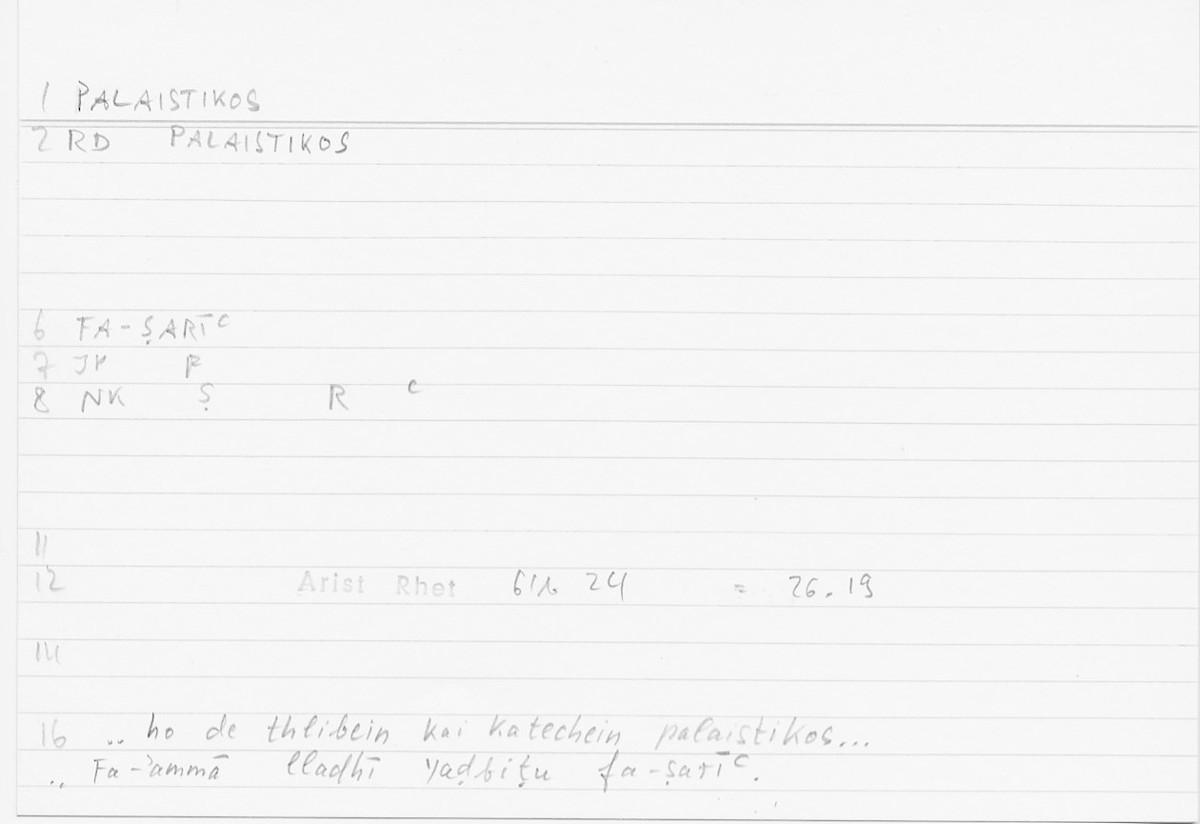 1 PALAISTIKOS
2 RD PALAISTIKOS
6 FA-ṢARĪC
7 JK F
8 NK Ṣ R C
11
12 Arist Rhet 61b 24 = 26.19
14
16 .. ho de thlibein kai katechein palaistikos...
.. Fa-ʾammā lladhī yaḍbiṭu fa-ṣarīc.